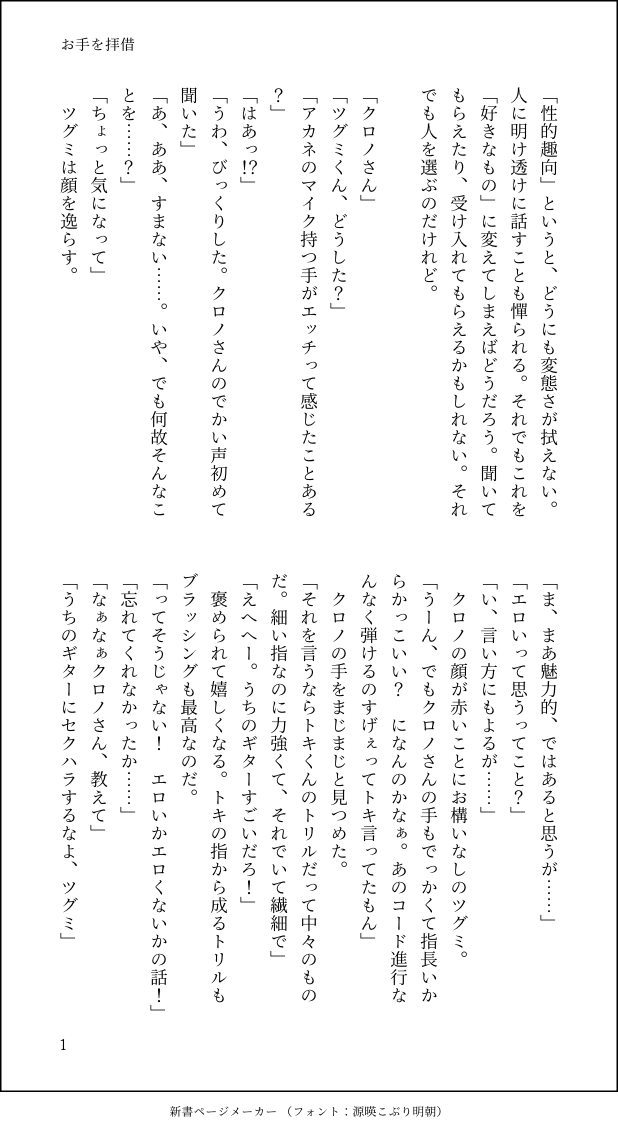 お手を拝借
「性的趣向」というと、どうにも変態さが拭えない。
人に明け透けに話すことも憚られる。それでもこれを
「好きなもの」に変えてしまえばどうだろう。聞いて
もらえたり、受け入れてもらえるかもしれない。それ
でも人を選ぶのだけれど。
「クロノさん」
「ツグミくん、どうした？」
「アカネのマイク持つ手がエッチって感じたことある
？」
「はあっ!?」
「うわ、びっくりした。クロノさんのでかい声初めて
聞いた」
「あ、ああ、すまない……。いや、でも何故そんなこ
とを……？」
「ちょっと気になって」
　ツグミは顔を逸らす。
「ま、まあ魅力的、ではあると思うが……」
「エロいって思うってこと？」
「い、言い方にもよるが……」
　クロノの顔が赤いことにお構いなしのツグミ。
「うーん、でもクロノさんの手もでっかくて指長いか
らかっこいい？　になんのかなぁ。あのコード進行な
んなく弾けるのすげぇってトキ言ってたもん」
　クロノの手をまじまじと見つめた。
「それを言うならトキくんのトリルだって中々のもの
だ。細い指なのに力強くて、それでいて繊細で」
「えへへー。うちのギターすごいだろ！」
　褒められて嬉しくなる。トキの指から成るトリルも
ブラッシングも最高なのだ。
「ってそうじゃない！　エロいかエロくないかの話！」
「忘れてくれなかったか……」
「なぁなぁクロノさん、教えて」
「うちのギターにセクハラするなよ、ツグミ」
1
新書ページメーカー（フォント：源暎こぶり明朝）